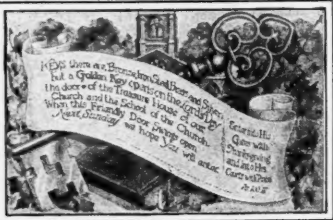 Keys there are, Bronze, Iron, Steel, and Silver,
but a Golden Key opens on the Lord's Day
the doors of the Treasure House of our
Church and the School of the Church.
When this Friendly Door swings open
Next Sunday we hope you will enter.
Enter into His
Gates with
Thanksgiving
and into His
Courts with Praise